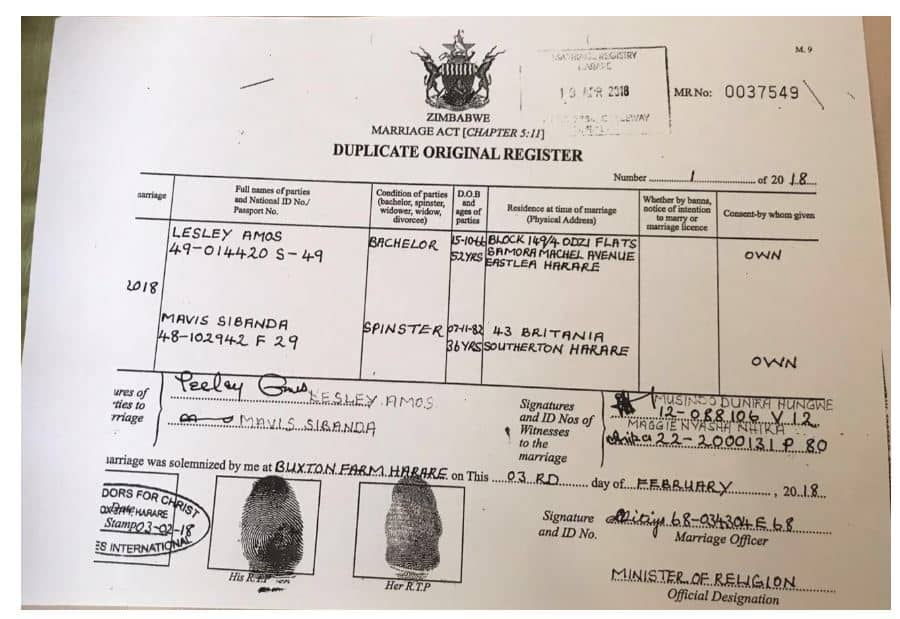 M. 9
MARRIAGE REGISTRY
HARARE
13 APR 2018
MR No: 0037549
ZIMBABWE
MARRIAGE ACT [CHAPTER 5:11]
DUPLICATE ORIGINAL REGISTER
Number 1 of 20 18
marriage
Full names of parties and National ID No./ Passport No.
Condition of parties (bachelor, spinster, widower, widow, divorcee)
D.O.B and ages of parties
Residence at time of marriage (Physical Address)
Whether by banns, notice of intention to marry or marriage licence
Consent-by whom given
LESLEY AMOS BACHELOR 15-10- BLOCK 149/4 ODZI FLATS
49-014420 S-49 52YRS SAMORA MACHEL AVENUE OWN
EASTLEA HARARE
2018
MAVIS SIBANDA SPINSTER 07-11-82 43 BRITANIA
48-102942 F 29 36YRS SOUTHERTON HARARE
OWN
ures of
ties to
rriage
LESLEY AMOS
MAVIS SIBANDA
Signatures
and ID Nos of
Witnesses
to the
marriage
DUNIRA HUNGWE
12-088106 V 12
MAGGIE NYASHA
22-2000131 P 80
arriage was solemnized by me at BUXTON FARM HARARE on This 03 RD day of FEBRUARY, 2018
DORS FOR CHRIST
HARARE
Stamp 03-02-18
ES INTERNATIONAL
His R.T.P
Her R.T.P
Signature
and ID No.
68-034304 E 68
Marriage Officer
MINISTER OF RELIGION
Official Designation